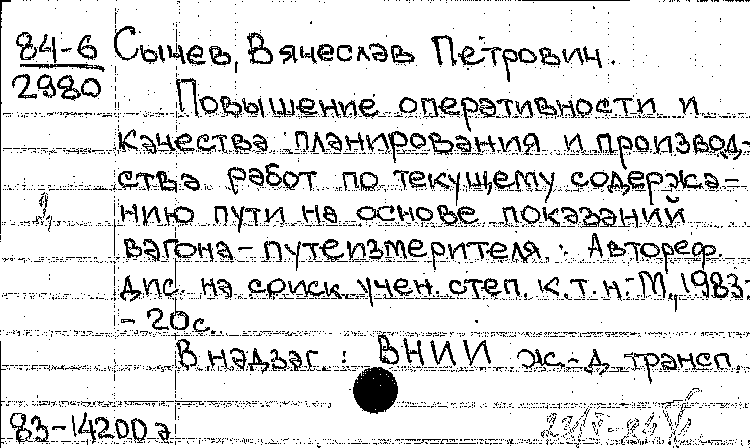 84-6 Сычев, Вячеслав Петрович.
2980
Повышение оперативности и
качества планирования и производ-
ства работ по текущему содержа-
нию пути на основе показаний
вагона-путеизмерителя.: Автореф.
дис. на соиск. учен. степ. к.т.н.-М., 1983.-
-20с.
В надзаг.: ВНИИ ж-д трансп.
83-14200а